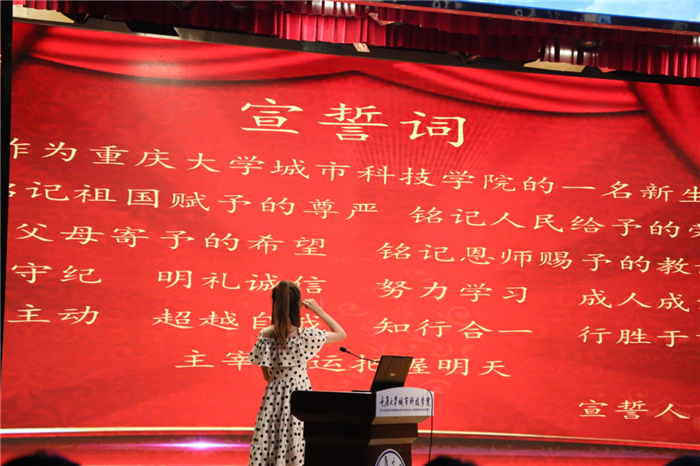 宣誓词
作为重庆大学城市科技学院的一名新生
铭记祖国赋予的尊严 铭记人民给予的荣
父母寄予的希望 铭记恩师赐予的教
守纪 明礼诚信 努力学习 成人成
主动 超越自 知行合一 行胜于
主宰 运把握明天
宣誓人
重庆大学城市科技学院